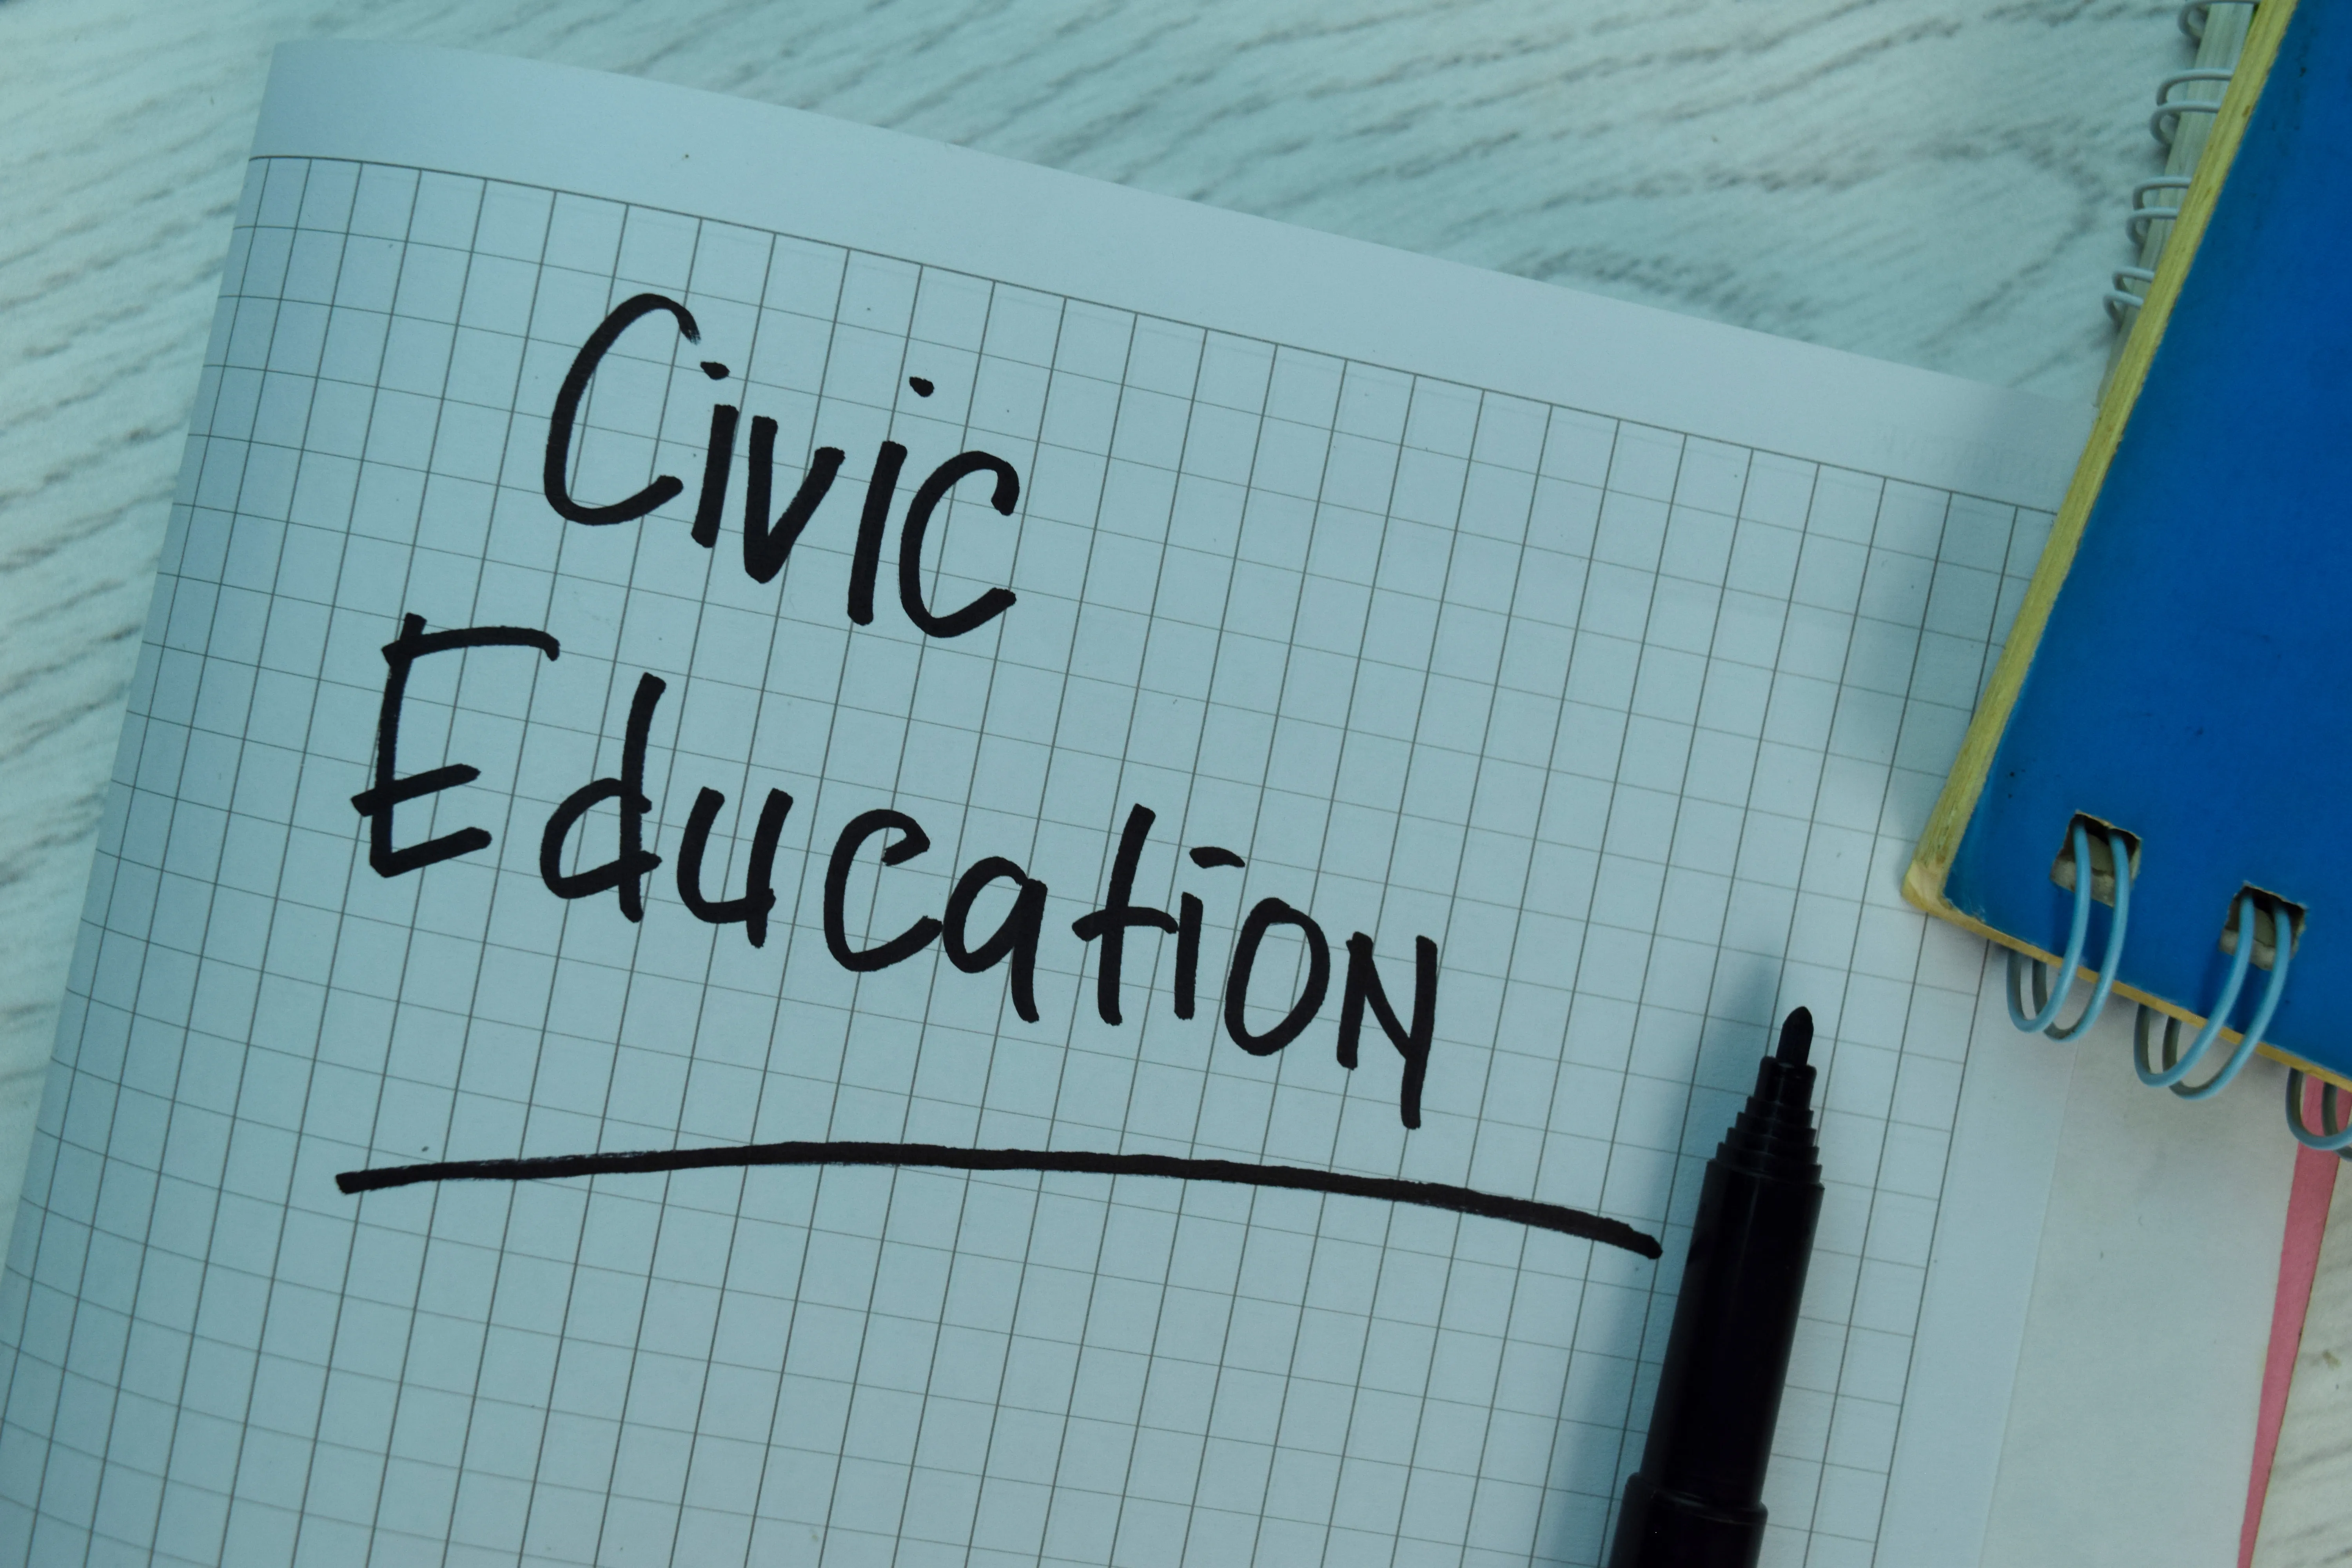 Civic
Education